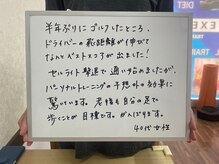 半年ぶりにゴルフしたところ、
ドライバーの飛距離が伸びて
なんとベストスコアが出ました!
セルライト撃退で通い始めましたが、
パーソナルトレーニングの予想外の効果に
驚いています。老後も自分の足で
歩くことが目標です。がんばります。
40代女性
DIET